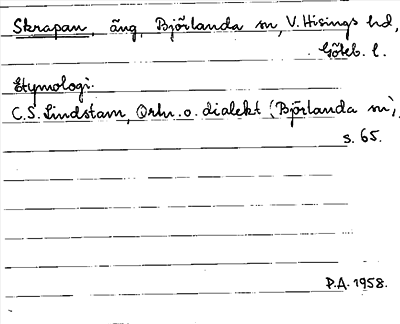 Skrapan, äng, Björlanda sn, V. Hisings hd,
Göteb. l.
Etymologi.
C.S. Lindstam, Ortn. o. dialekt (Björlanda sn),
s. 65.
P.A. 1958.